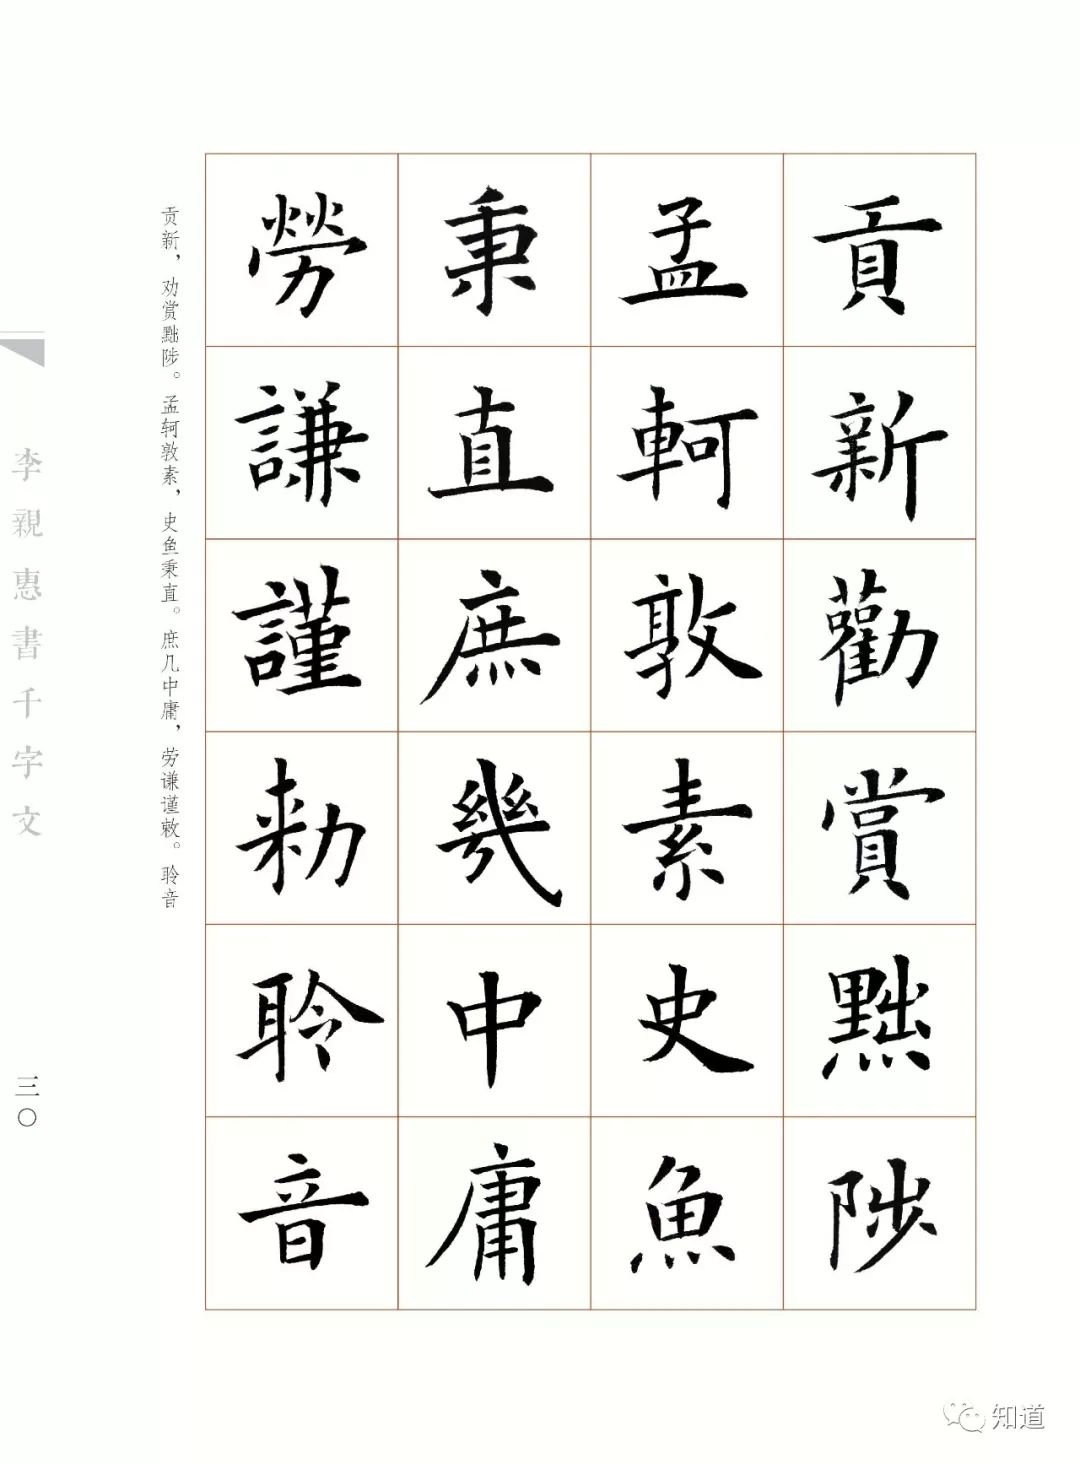 貢新勸賞黜陟
孟軻敦素史魚
秉直庶幾中庸
勞謙謹勑聆音
贡新，劝赏黜陟。孟轲敦素，史鱼秉直。庶几中庸，劳谦谨敕。聆音
李親惠書千字文
三〇
知道